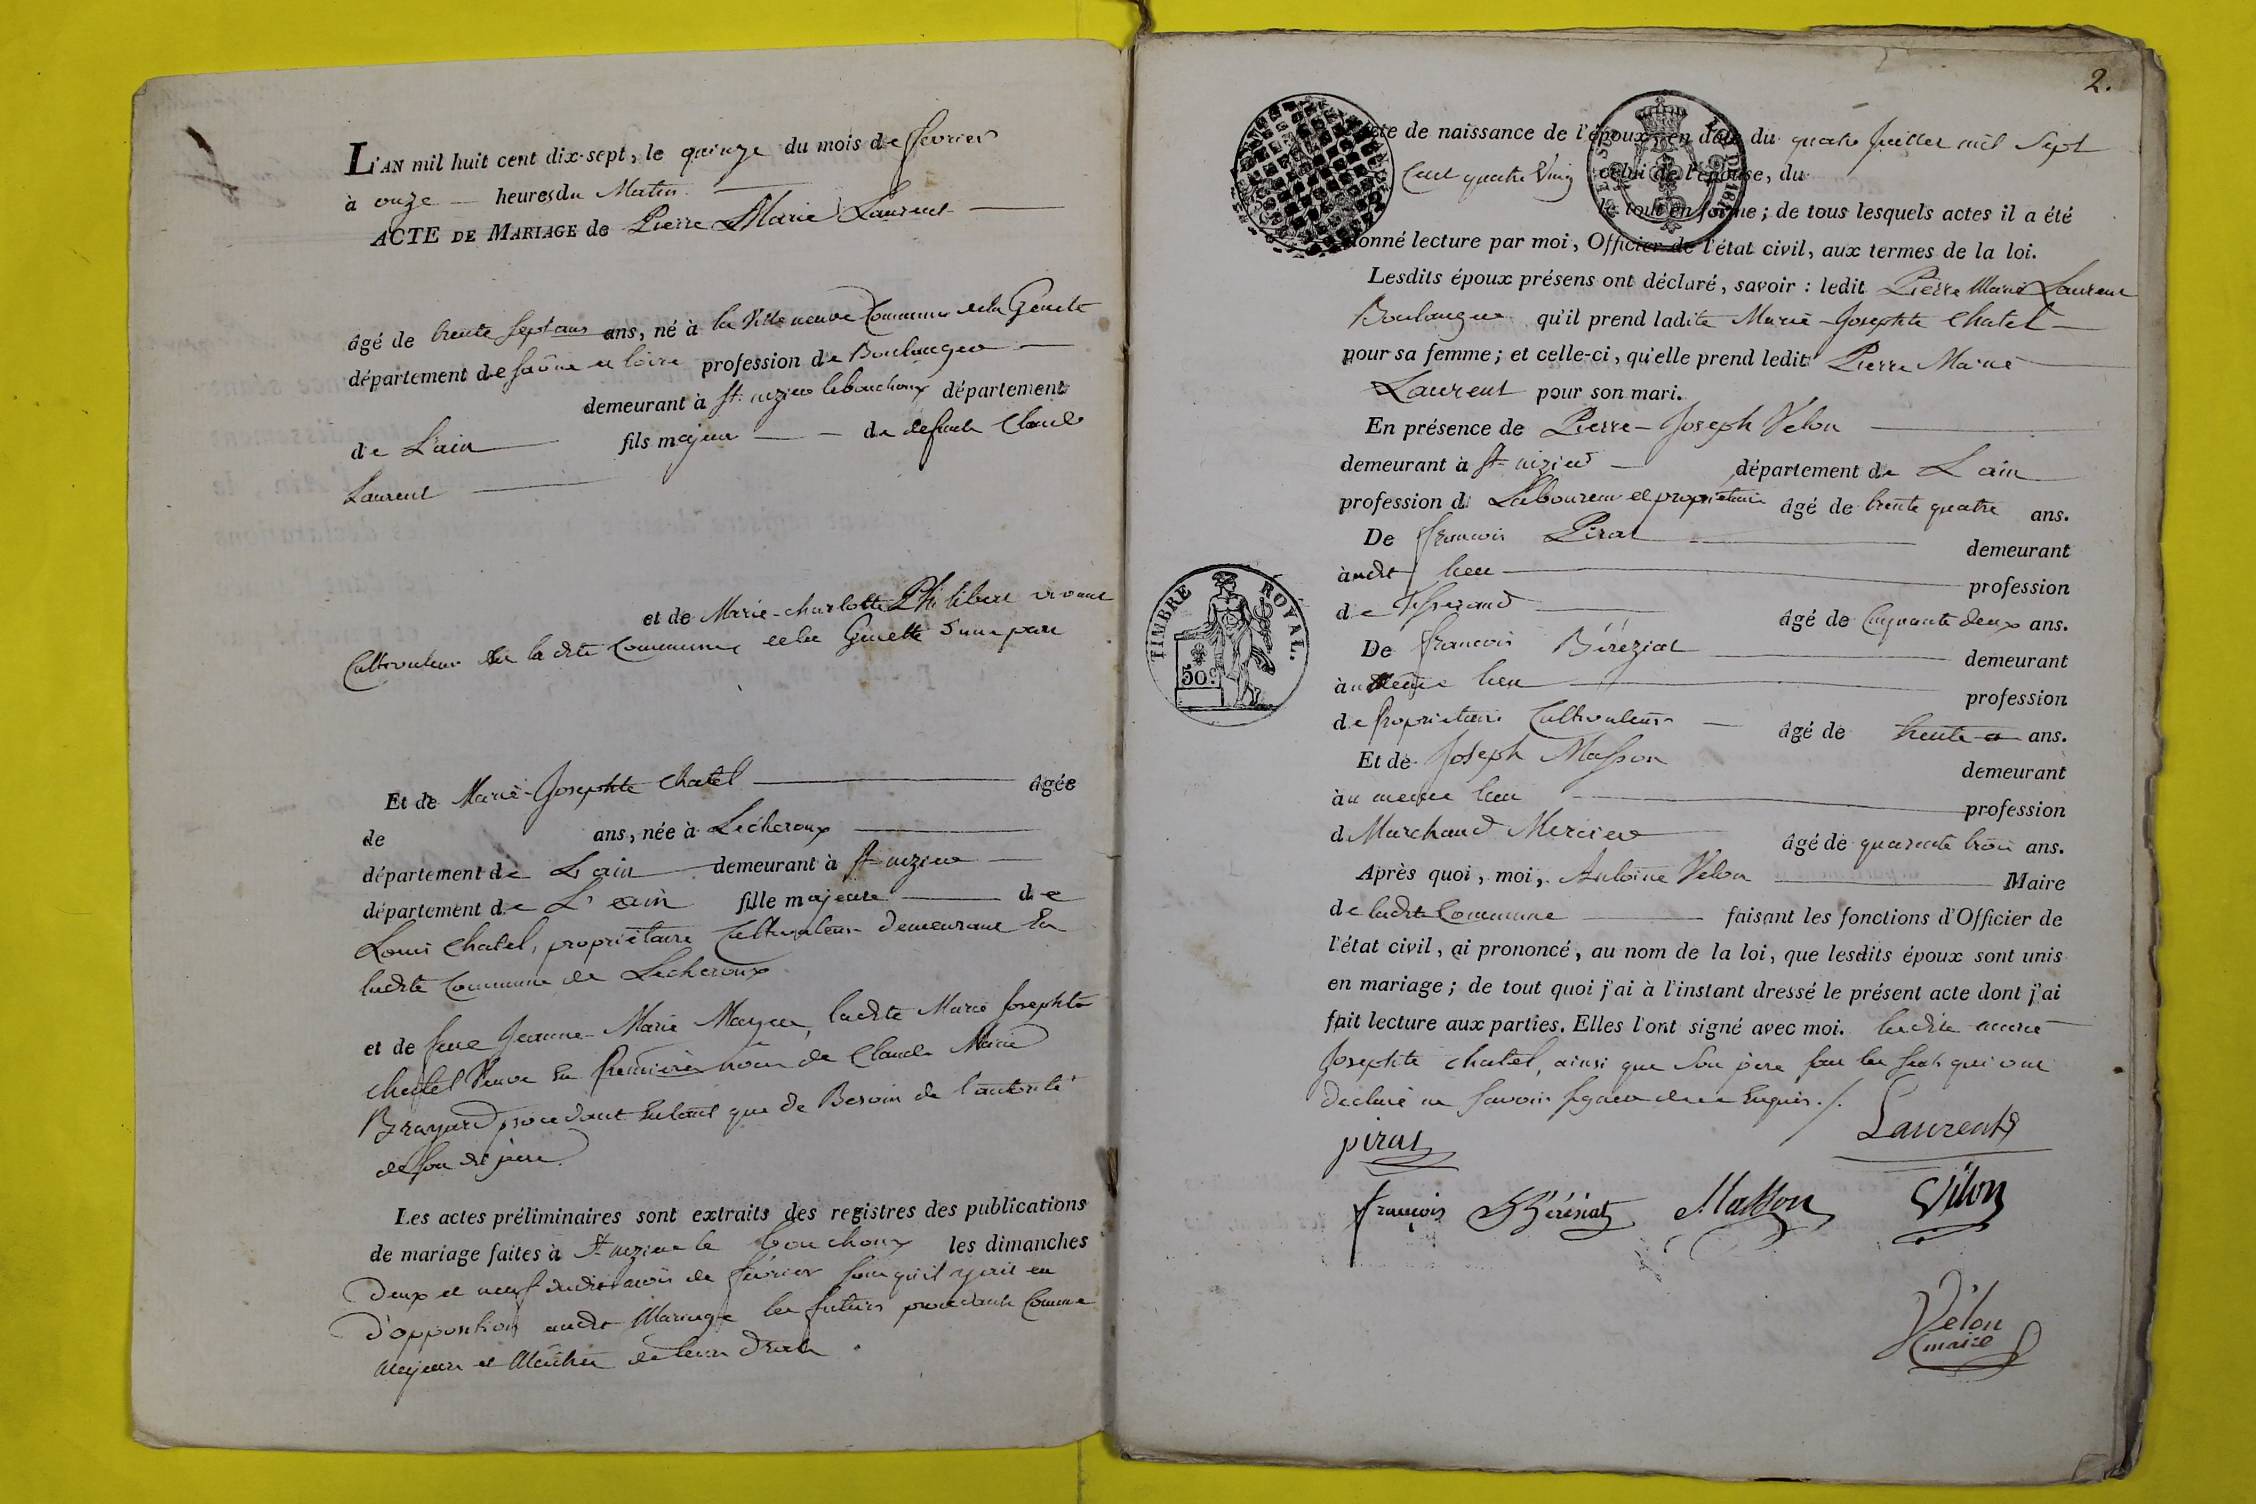 L'AN mil huit cent dix-sept, le quinze du mois de fevrier
à onze heures du Matin
ACTE DE MARIAGE de Pierre Marie Laurent
âgé de trente sept ans ans, né à la Villeneuve Commune de la Genete
département de Saône et loire profession de Boulanger
demeurant à St. nizier lebouchoux département
de L'ain fils majeur de defunt Claude
Laurent
et de Marie-charlotte Philibert vivant
Cultivateur de la dite Commune de la Genette d'une part
Et de Marie-Josephte Chatel agée
de ans, née à Lécheroux
département de L'ain demeurant à St. nizier
département de L'ain fille majeure de
Louis Chatel, propriétaire Cultivateur demeurant en
ladite Commune de Lecheroux
et de feue Jeanne-Marie Mayeu, ladite Marie Josephte
chatel Veuve en Premieres noces de Claude Marie
Brayard procedant Entant que de Besoin de l'autorité
de son dit pere.
Les actes préliminaires sont extraits des registres des publications
de mariage faites à St. nizier le bouchoux les dimanches
Deux et neuf dudit mois de fevrier sans qu'il y ait eu
d'opposition audit Mariage les futurs procedant Comme
majeurs et Maitres de leurs Droits.
2.
de naissance de l'époux, en date du quatre Juillet mil Sept
Cent quatre Vingt celui de l'épouse, du
le tout en forme; de tous lesquels actes il a été
donné lecture par moi, Officier de l'état civil, aux termes de la loi.
Lesdits époux présens ont déclaré, savoir: ledit Pierre Marie Laurent
Boulanger qu'il prend ladite Marie-Josephte Chatel
pour sa femme; et celle-ci, qu'elle prend ledit Pierre Marie
Laurent pour son mari.
En présence de Pierre-Joseph Velon
demeurant à St. nizier département de L'ain
profession d Laboureur et propriétaire âgé de trente quatre ans.
De francois Pirat demeurant
audit lieu profession
de Tisserand âgé de Cinquante deux ans.
De francois Béréziat demeurant
au Même lieu profession
de Proprietaire Cultivateur âgé de trente ans.
Et de Joseph Masson demeurant
au meme lieu profession
d Marchand Mercier âgé de quarente trois ans.
Après quoi, moi, Antoine Velon Maire
de ladite Commune faisant les fonctions d'Officier de
l'état civil, ai prononcé, au nom de la loi, que lesdits époux sont unis
en mariage; de tout quoi j'ai à l'instant dressé le présent acte dont j'ai
fait lecture aux parties. Elles l'ont signé avec moi. ladite marie
Josephte Chatel, ainsi que Son pere qui ont
declaré ne Savoir Signer de ce Enquis./.
TIMBRE ROYAL.
50c
pirat
Laurent
françois Béréziat
Masson
Vélon
Vélon
maire